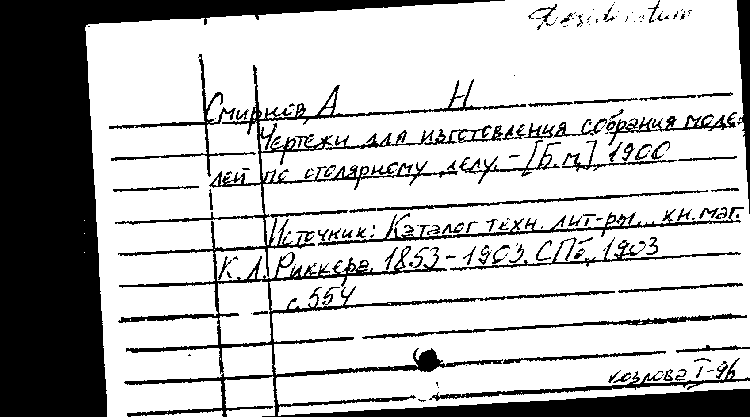 Desideratum
Смирнов, А Н
Чертежи для изготовления собрания моде-
лей по столярному делу. – [Б.м.], 1900
Источник: Каталог техн. лит-ры... кн. маг.
К. Л. Риккера. 1853–1903. СПб., 1903
с. 554
козлова I-96